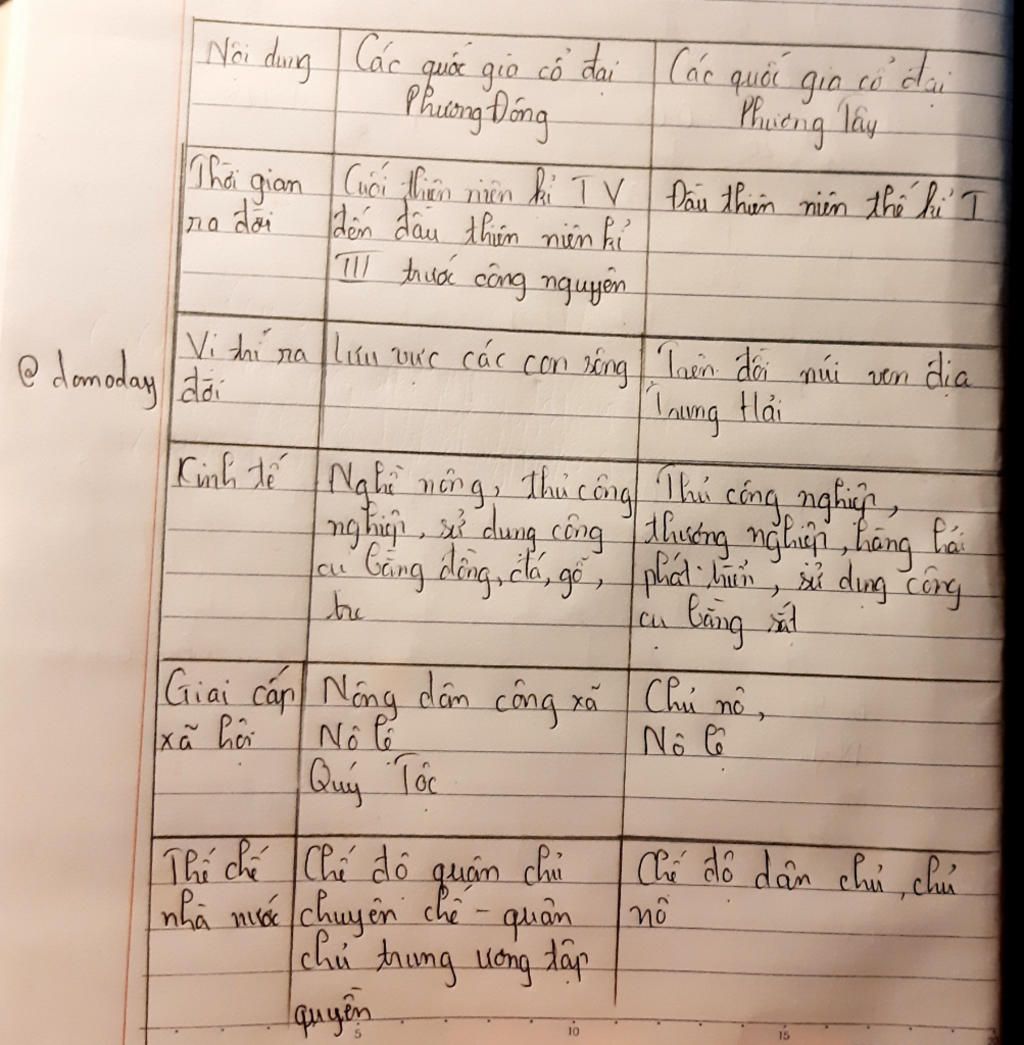 Nội dung
Các quốc gia cổ đại
Phương Đông
Các quốc gia cổ đại
Phương Tây
Thời gian
ra đời
Cuối thiên niên kỉ IV
đến đầu thiên niên kỉ
III trước công nguyên
Đầu thiên niên thế kỉ I
@domoday
Vị trí ra
đời
Lưu vực các con sông
Trên đồi núi ven địa
Trung Hải
Kinh tế
Nghề nông, thủ công
nghiệp, sử dụng công
cụ bằng đồng, đá, gỗ,
tre
Thủ công nghiệp,
thương nghiệp, hàng hải
phát triển, sử dụng công
cụ bằng sắt
Giai cấp
xã hội
Nông dân công xã
Nô lệ
Quý Tộc
Chủ nô,
Nô lệ
Thể chế
nhà nước
Chế độ quân chủ
chuyên chế - quân
chủ trung ương tập
quyền
Chế độ dân chủ, chủ
nô
5
10
15